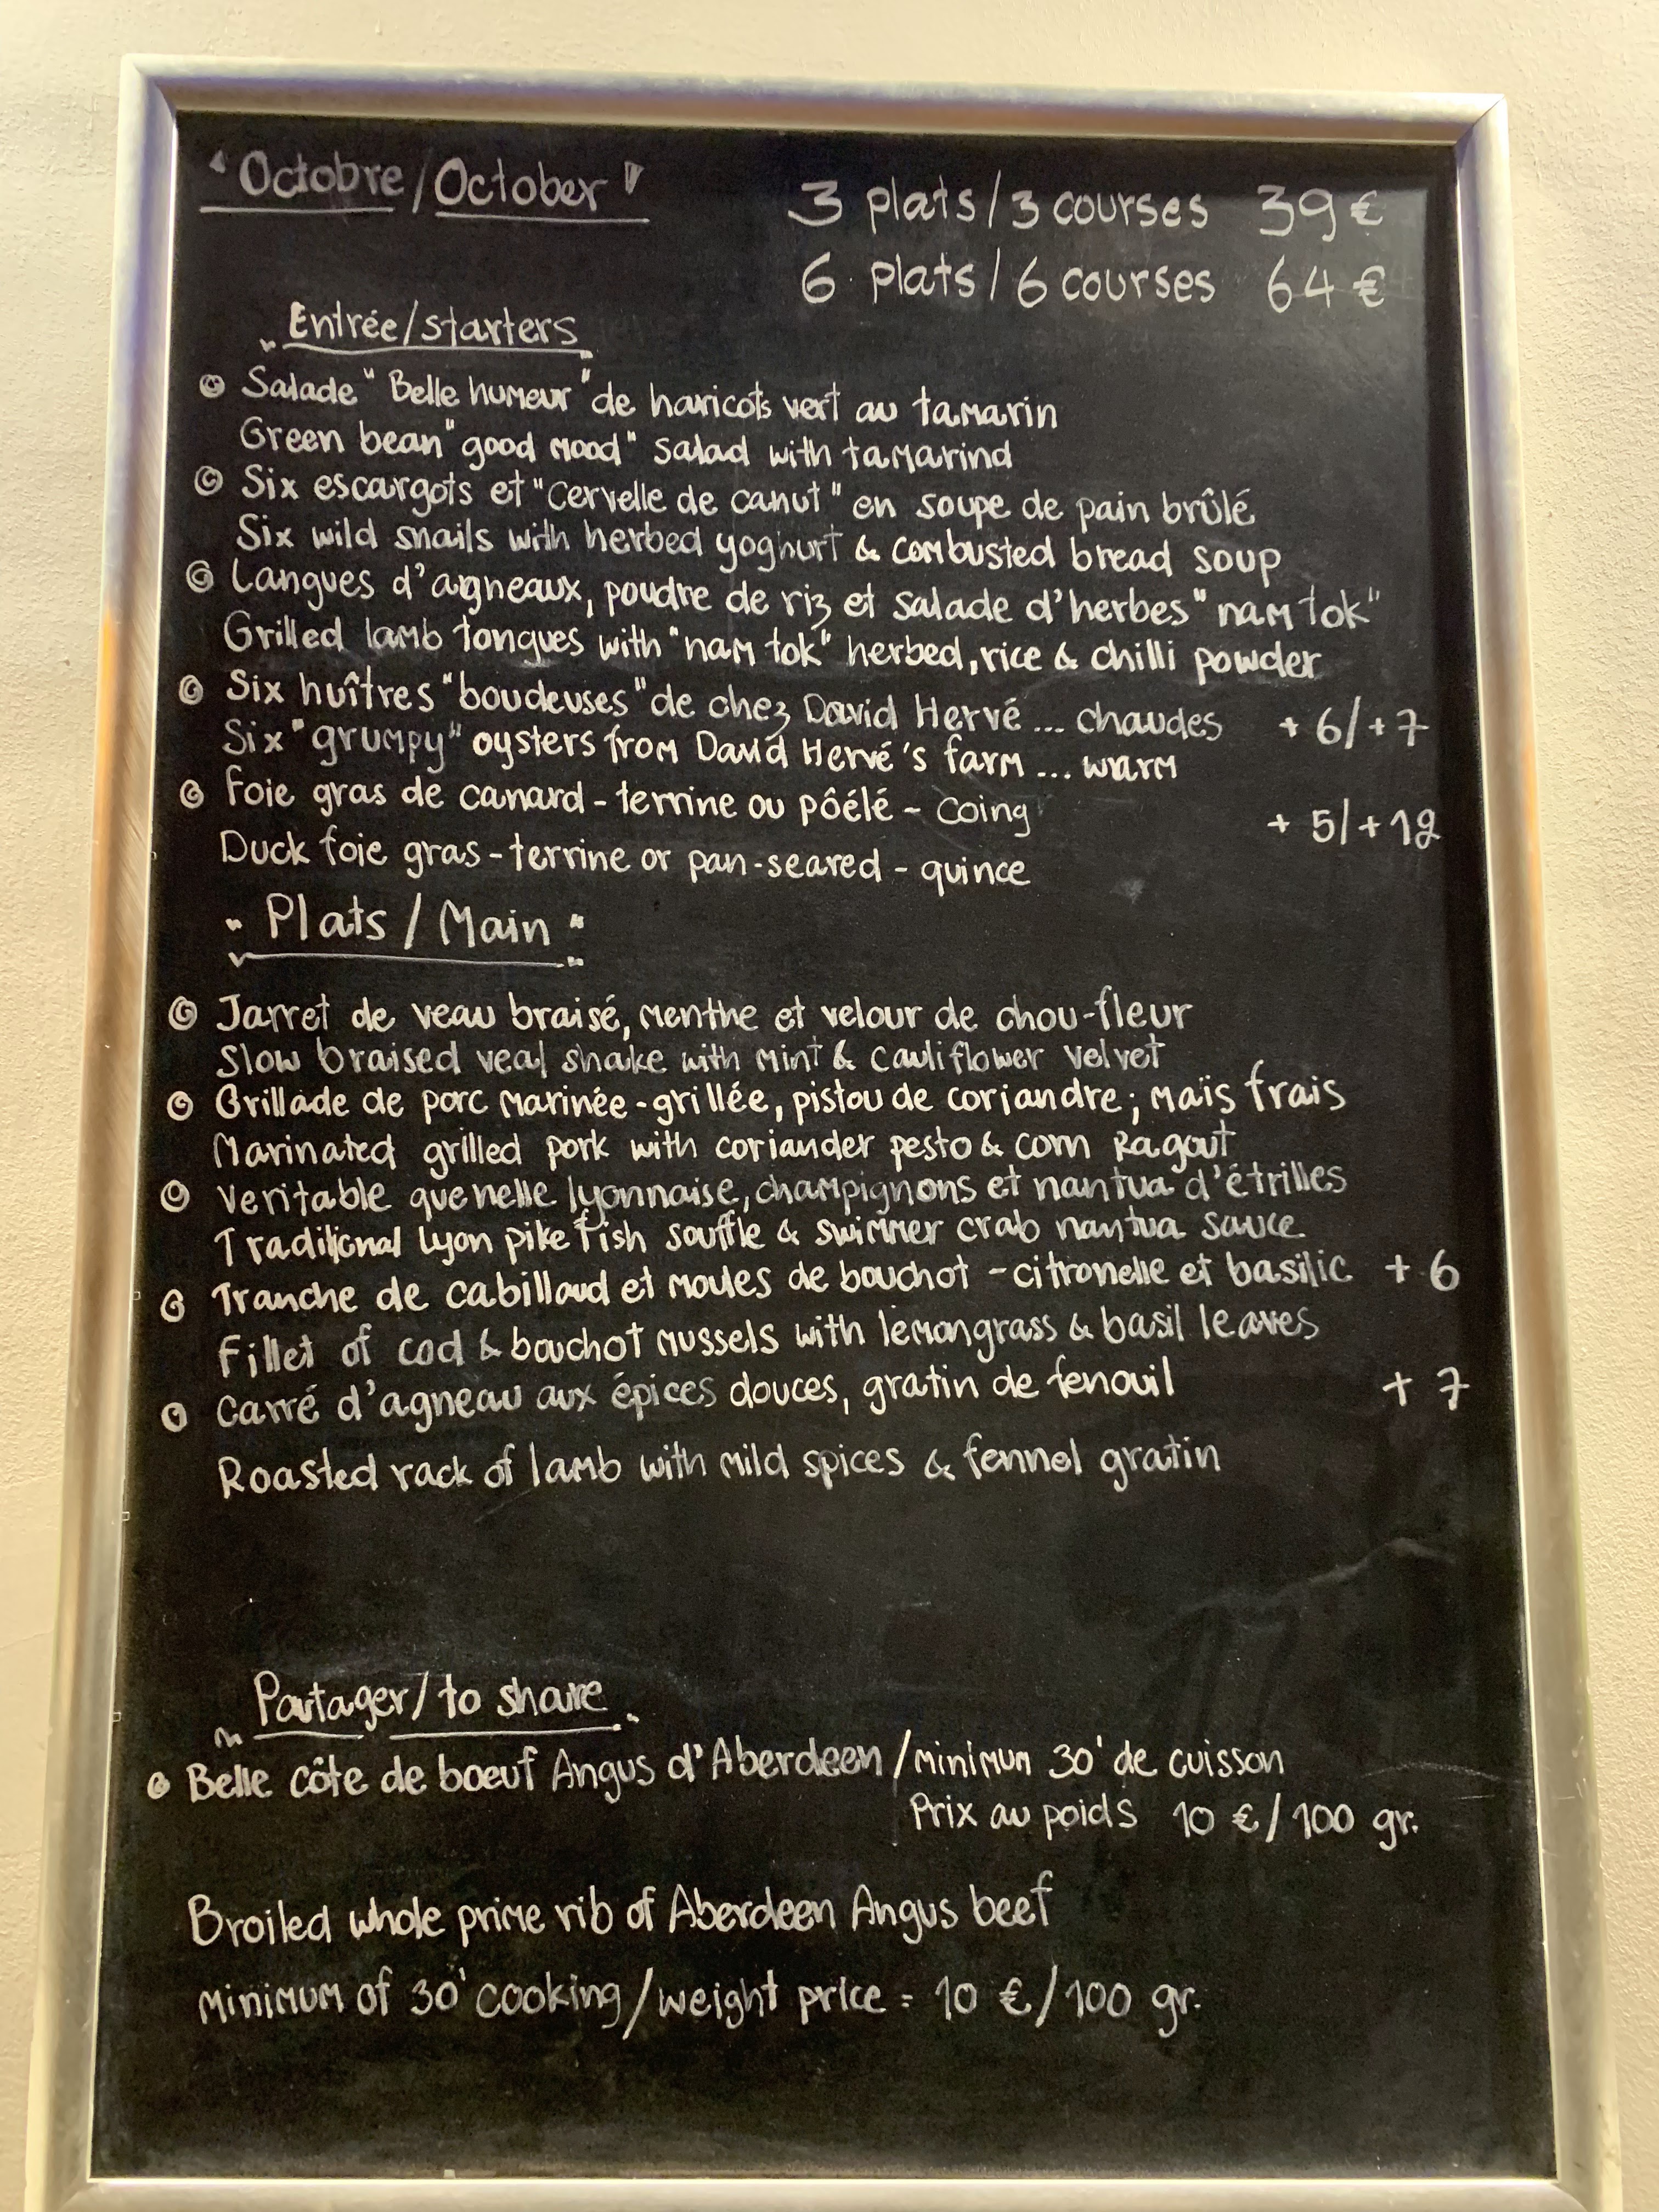 "Octobre/October"
3 plats/3 courses 39 €
6 plats/6 courses 64 €
Entrée/starters
Salade "Belle humeur" de haricots vert au tamarin
Green bean "good mood" salad with tamarind
Six escargots et "cervelle de canut" en soupe de pain brûlé
Six wild snails with herbed yoghurt & combusted bread soup
Langues d'agneaux, poudre de riz et salade d'herbes "nam tok"
Grilled lamb tongues with "nam tok" herbed, rice & chilli powder
Six huîtres "boudeuses" de chez David Hervé ... chaudes + 6/+7
Six "grumpy" oysters from David Hervé's farm ... warm
Foie gras de canard - terrine ou pôélé - coing + 5/+12
Duck foie gras - terrine or pan-seared - quince
"Plats / Main"
Jarret de veau braisé, menthe et velour de chou-fleur
Slow braised veal shake with mint & cauliflower velvet
Grillade de porc marinée-grillée, pistou de coriandre; maïs frais
Marinated grilled pork with coriander pesto & corn Ragout
Veritable quenelle lyonnaise, champignons et nantua d'étrilles
Traditional Lyon pike fish souffle & swimmer crab nantua sauce
Tranche de cabillaud et moules de bouchot - citronelle et basilic + 6
Fillet of cod & bouchot mussels with lemongrass & basil leaves
Carré d'agneau aux épices douces, gratin de fenouil + 7
Roasted rack of lamb with mild spices & fennel gratin
Partager/to share
Belle côte de boeuf Angus d'Aberdeen/minimun 30' de cuisson
Prix au poids 10 €/100 gr.
Broiled whole prime rib of Aberdeen Angus beef
Minimum of 30' cooking/weight price = 10 €/100 gr.